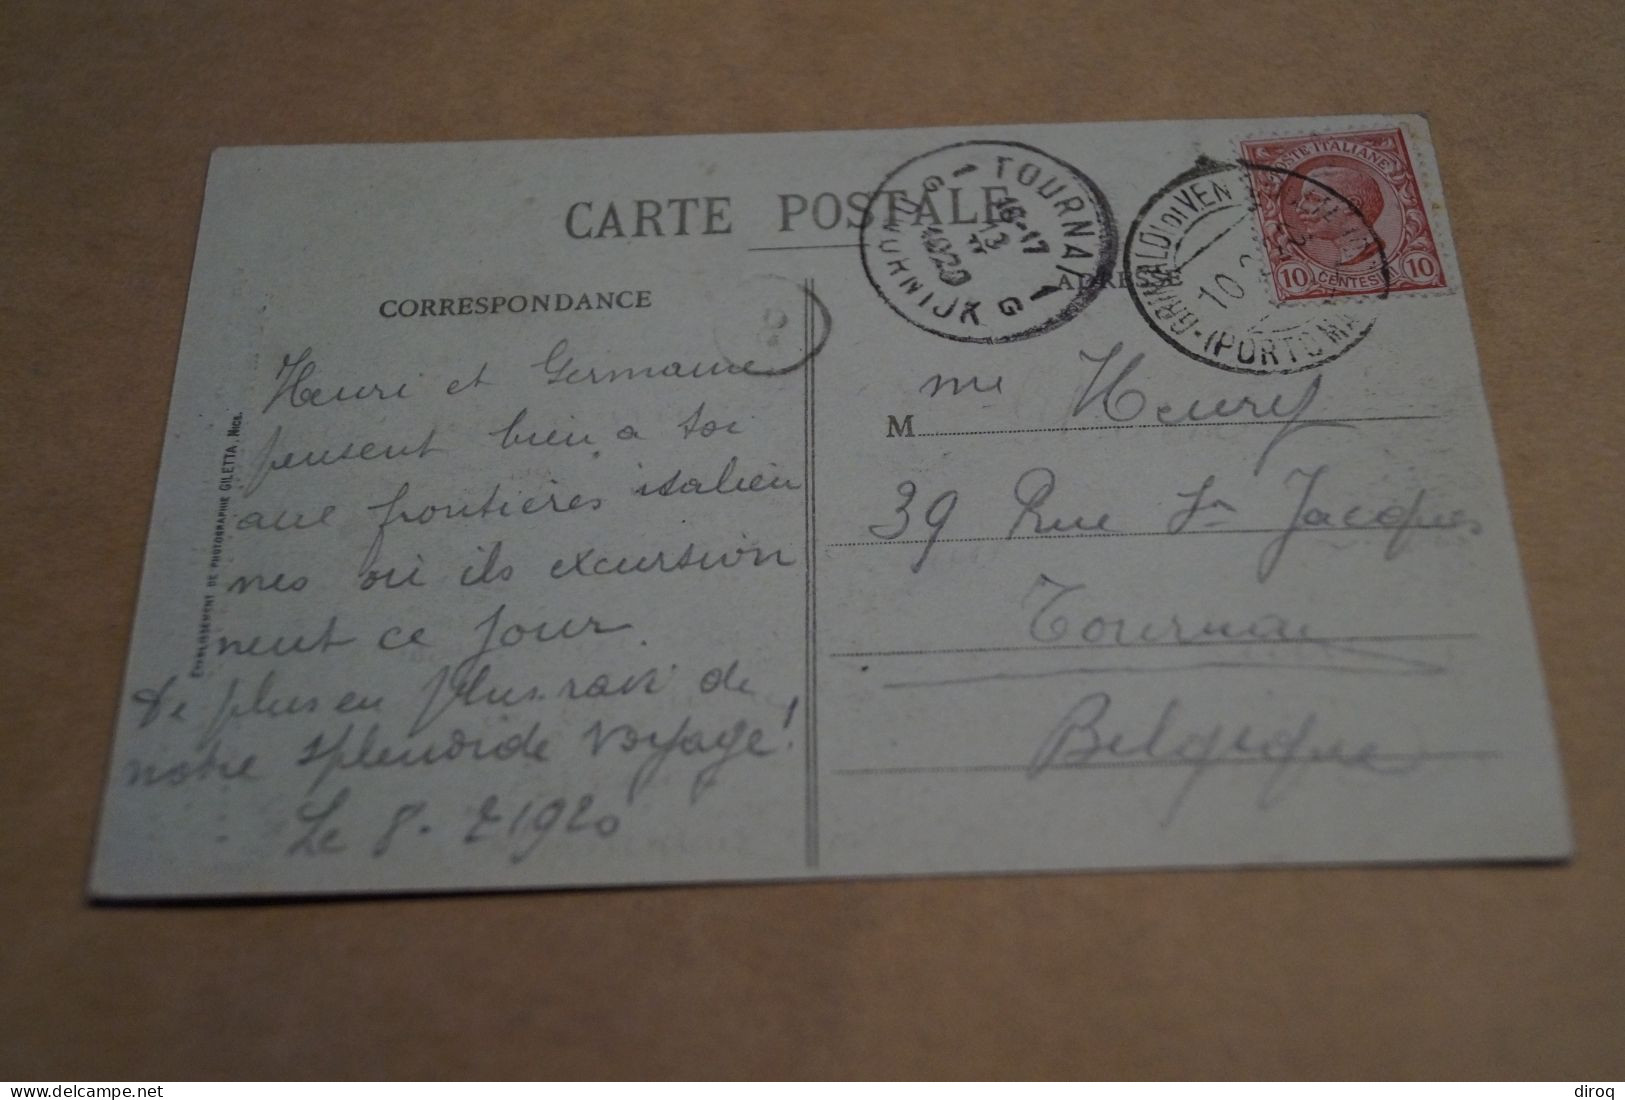 CARTE POSTALE
CORRESPONDANCE
ADRESSE
Henri et Germaine
pensent bien a toi
aux frontières italien
nes où ils excursion
nent ce jour.
De plus en plus ravis de
notre splendide voyage!
Le 8. 2 1920
ETABLISSEMENT DE PHOTOGRAPHIE GILETTA, NICE.
TOURNAI 1
1 G DOORNIJK G
16-17
13
1920
GRIMALDI DI VEN
(PORTO MA
10
POSTE ITALIANE
10 CENTES 10
M me Henry
39 Rue St Jacques
Tournai
Belgique
diroq